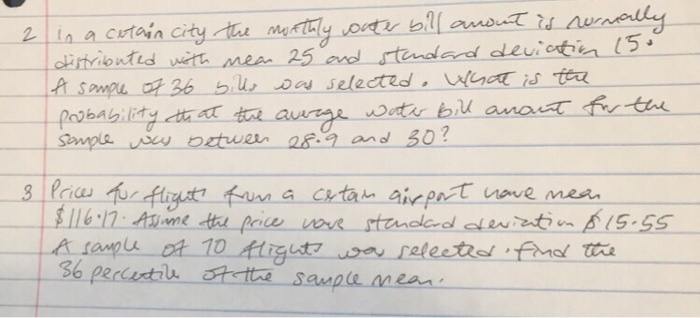 2 In a certain city the monthly water bill amount is normally
distributed with mean 25 and standard deviation 15.
A sample of 36 bills was selected. What is the
probability that the average water bill amount for the
sample was between 28.9 and 30?
3 Prices for flights from a certain airport have mean
$116.17. Assume the price have standard deviation $15.55
A sample of 70 flights was selected. find the
36 percentile of the sample mean.